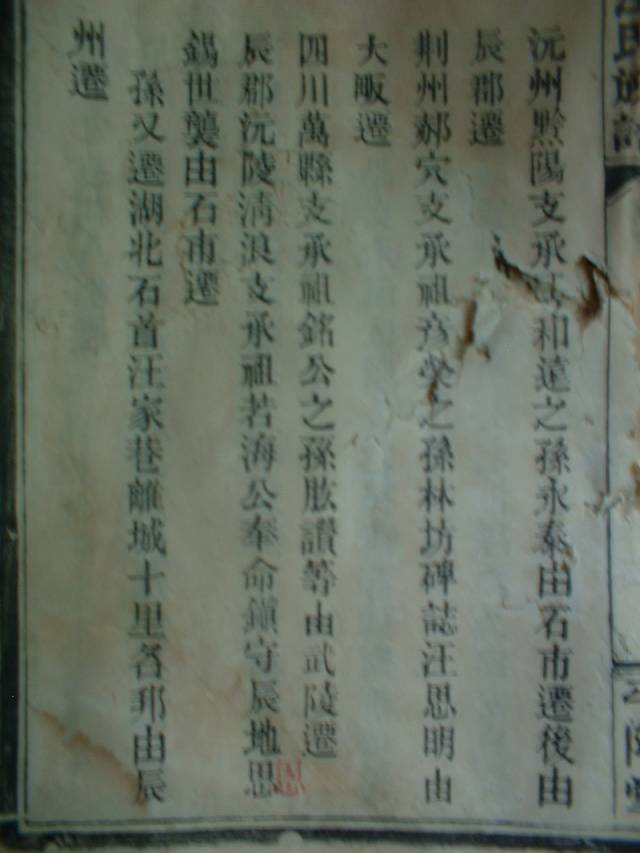 沅州黔陽支承 和 之孫永泰由石市遷後由
辰郡遷
荆州郝穴支承祖彦榮之孫林坊碑誌汪思明由
大畈遷
四川萬縣支承祖銘公之孫肱讃等由武陵遷
辰郡沅陵清浪支承祖若海公奉命鎮守辰地思
錫世襲由石市遷
孫又遷湖北石首汪家巷離城十里名 由辰
州遷